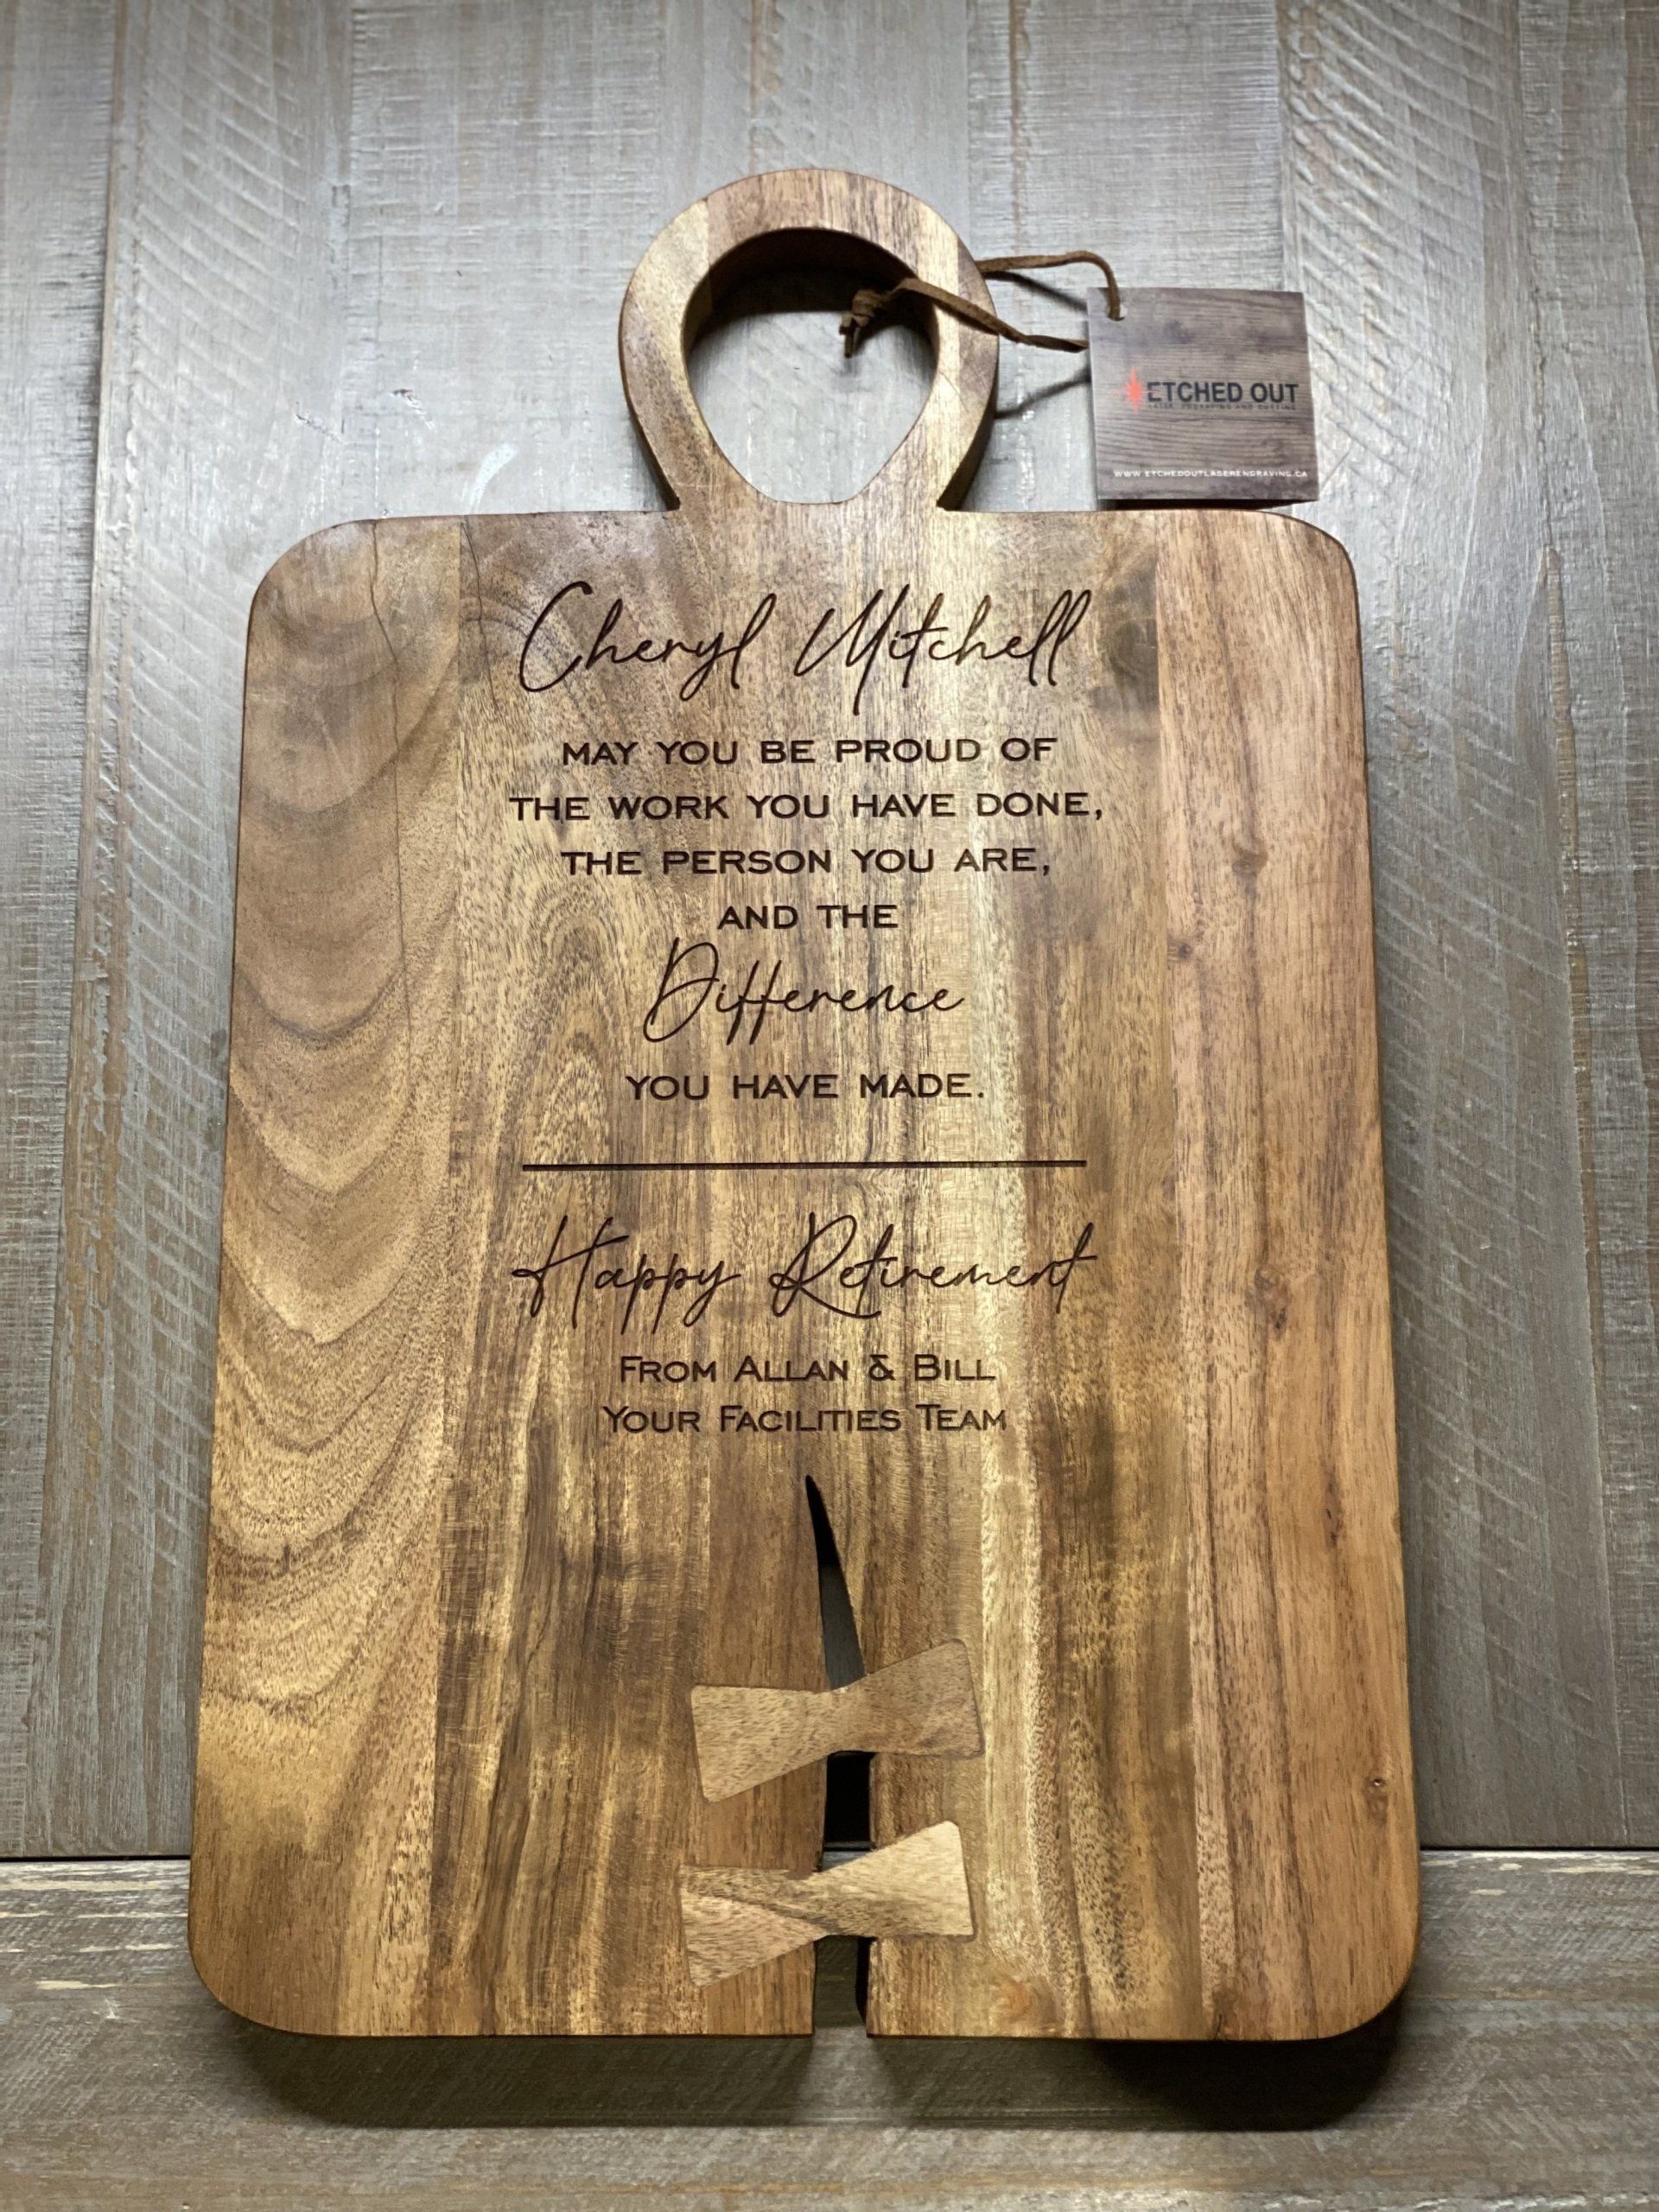 ETCHED OUT
LASER ENGRAVING AND CUTTING
WWW.ETCHEDOUTLASERENGRAVING.CA
Cheryl Mitchell
MAY YOU BE PROUD OF
THE WORK YOU HAVE DONE,
THE PERSON YOU ARE,
AND THE
Difference
YOU HAVE MADE.
Happy Retirement
FROM ALLAN & BILL
YOUR FACILITIES TEAM